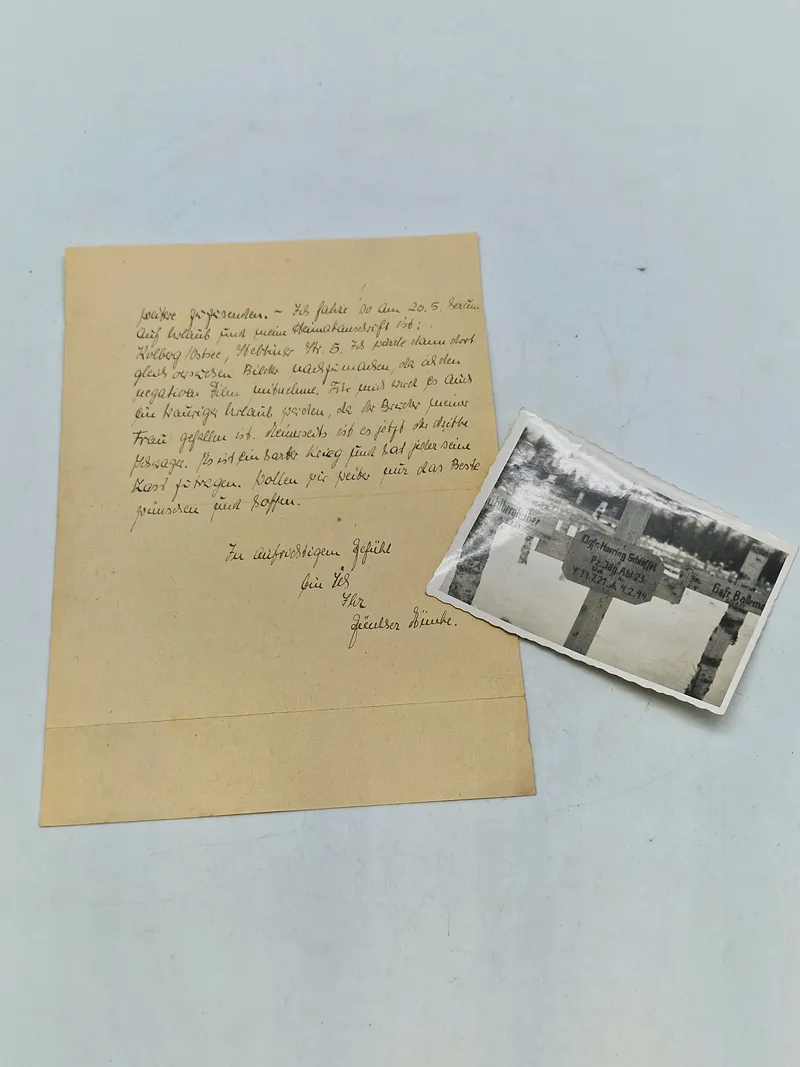 weitere zuzusenden. – Ich fahre so am 20.5. herum
auf Urlaub und meine Heimatanschrift ist:
Kolberg/Ostsee, Stettiner Str. 5. Ich würde dann dort
gleich versuchen Bilder nachzumachen, da ich den
negativen Film mitnehme. Für mich wird es auch
ein trauriger Urlaub werden, da der Bruder meiner
Frau gefallen ist. Meinerseits ist es jetzt der dritte
Schwager. Es ist ein harter Krieg und hat jeder seine
Last zu tragen. Wollen wir weiter nur das Beste
wünschen und hoffen.
In aufrichtigem Gefühl
bin ich
Ihr
Günther
Ogfr.
Pz. Jäg. Abt. 23
* 14.7.21 4.2.44
Gefr.